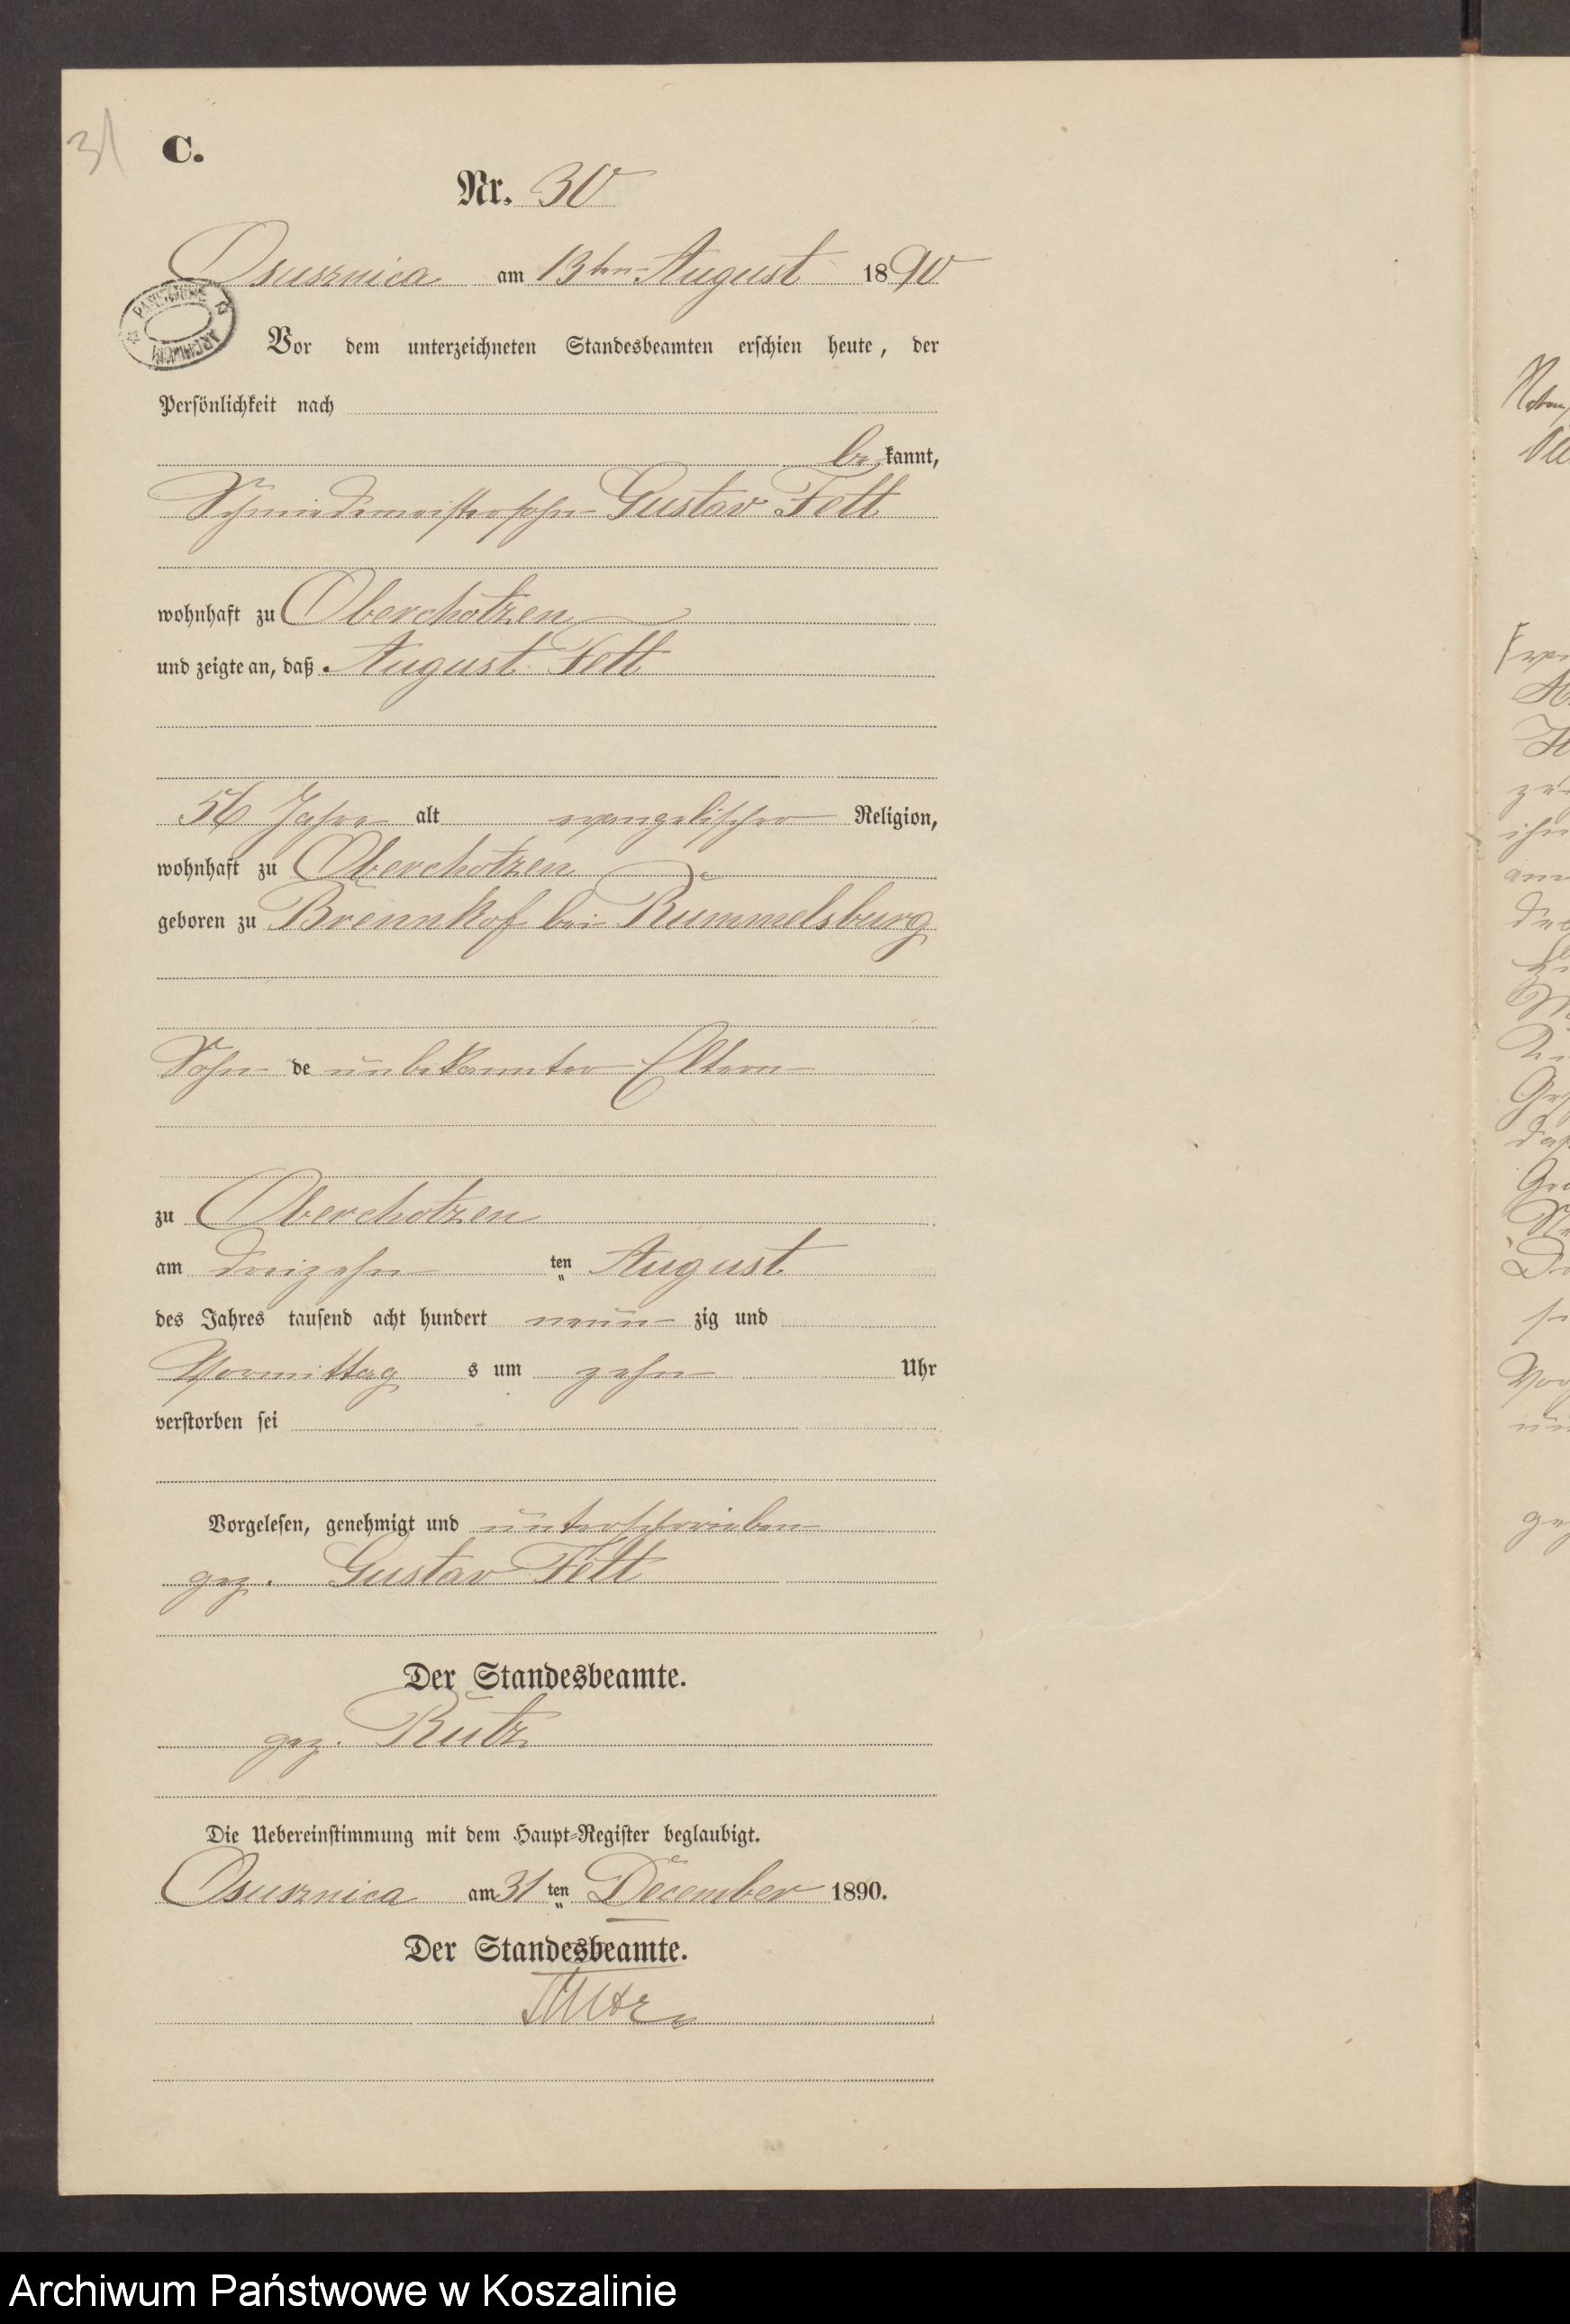 31
C.
Nr. 30
Osusznica am 13ten August 1890
PAŃSTWOWE ARCHIWUM
Vor dem unterzeichneten Standesbeamten erschien heute, der
Persönlichkeit nach
be kannt,
Schmiedemeistersohn Gustav Fett
wohnhaft zu Oberchotzen
und zeigte an, daß August Fett
56 Jahre alt evangelischer Religion,
wohnhaft zu Oberchotzen
geboren zu Brennkof bei Rummelsburg
Sohn de unbekannter Eltern
zu Oberchotzen
am dreizehn ten August
des Jahres tausend acht hundert neun zig und
Vormittag s um zehn Uhr
verstorben sei
Vorgelesen, genehmigt und unterschrieben
gez. Gustav Fett
Der Standesbeamte.
gez. Rutz
Die Uebereinstimmung mit dem Haupt-Register beglaubigt.
Osusznica am 31 ten December 1890.
Der Standesbeamte.
Rutz
Archiwum Państwowe w Koszalinie